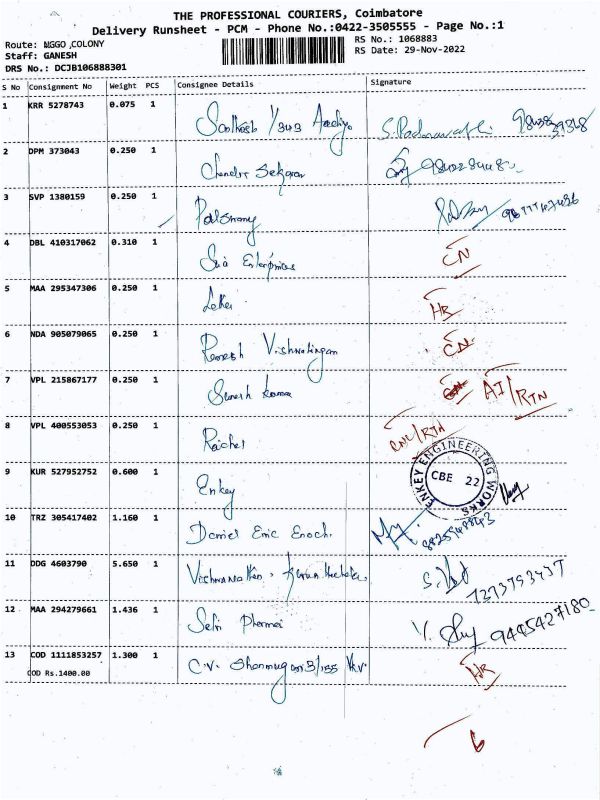 THE PROFESSIONAL COURIERS, Coimbatore
Delivery Runsheet - PCM - Phone No.:0422-3505555 - Page No.:1
Route: NGGO ,COLONY RS No.: 1068883
Staff: GANESH RS Date: 29-Nov-2022
DRS No.: DCJB106888301
S No Consignment No Weight PCS Consignee Details Signature
1 KRR 5278743 0.075 1 Santhosh
2 DPM 373043 0.250 1 Chandra Sekaran
3 SVP 1380159 0.250 1 Palsamy
4 DBL 410317062 0.310 1 Sri Enterprises CN
5 MAA 295347306 0.250 1 HR
6 NDA 905079065 0.250 1 Ramesh Vishwalingam CN
7 VPL 215867177 0.250 1 Suresh Kumar AI/RTN
8 VPL 400553053 0.250 1 Rachel CNL/RTN
9 KUR 527952752 0.600 1 Enkey
ENKEY ENGINEERING WORKS
CBE 22
10 TRZ 305417402 1.160 1 Daniel Eric Enoch
11 DDG 4603790 5.650 1 7273753437
12 MAA 294279661 1.436 1 Selvi 9445427180
13 COD 1111853257 1.300 1 C.V. Shanmugam 3/155 HR
COD Rs.1400.00
6